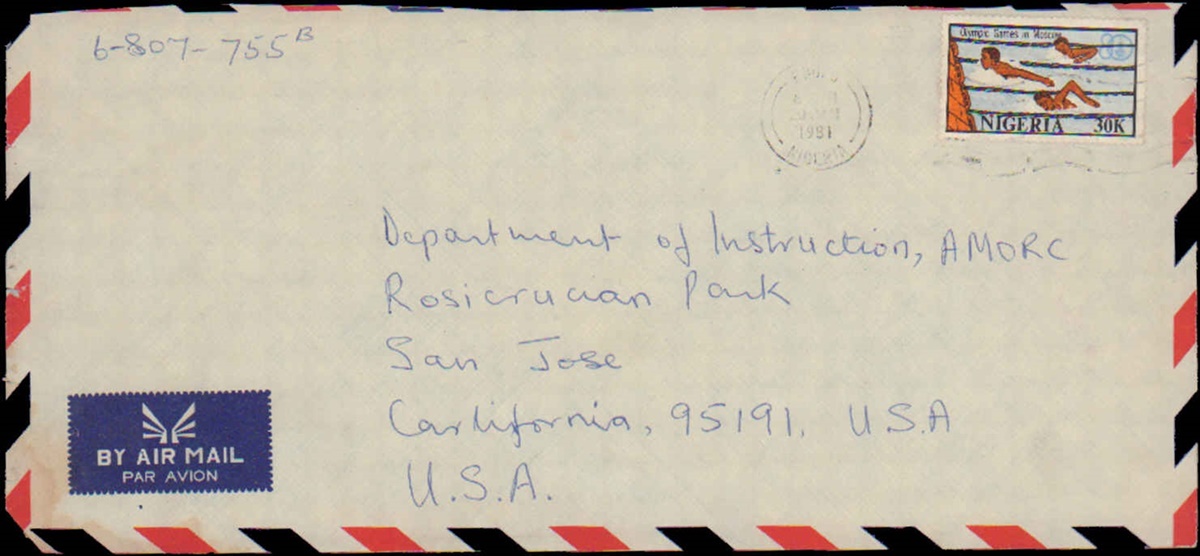 6-807-755B
Olympic Games in Moscow
NIGERIA 30K
1981
NIGERIA
Department of Instruction, AMORC
Rosicrucian Park
San Jose
Carlifornia, 95191, U.S.A
U.S.A.
BY AIR MAIL
PAR AVION